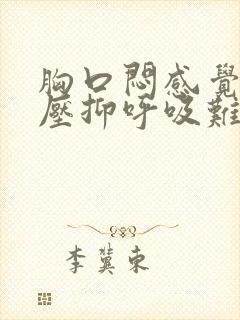 胸口悶感覺
壓抑呼吸難
李冀東